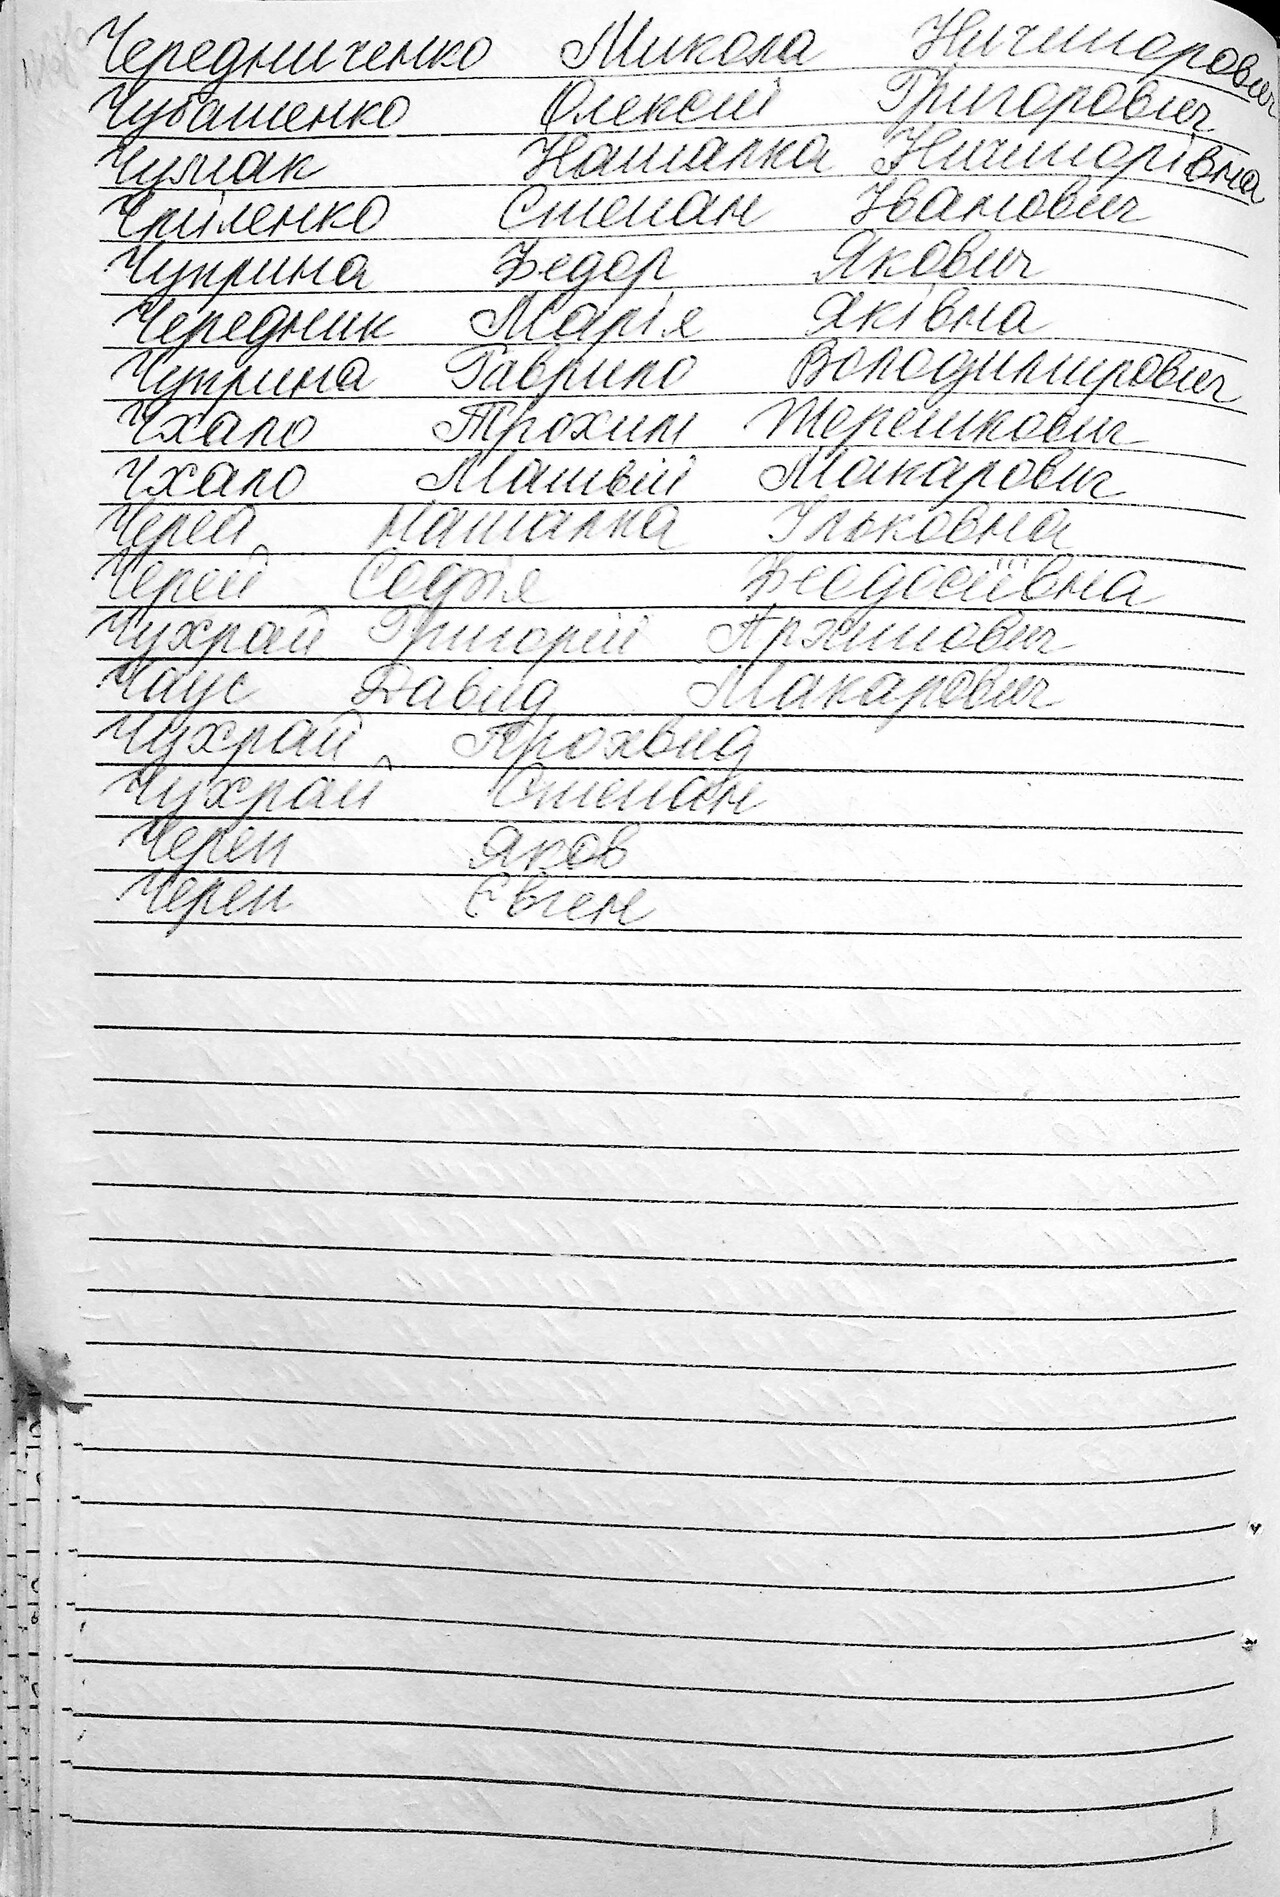 Чередниченко Микола Ничипорович
Чубатенко Олексій Григорович
Чумак Наталка Ничипорівна
Степан Іванович
Чуприна Федор Якович
Чередник Марія Яківна
Чуприна Гаврило Володимирович
Чхало Трохим Терешкович
Чхало Матвій Макарович
Черей Наталка Ільковна
Черей Софія Феодосіївна
Чухрай Григорій Архипович
Чаус Давид Макарович
Чухрай Прохвид
Чухрай Степан
Череп Яков
Череп Євген